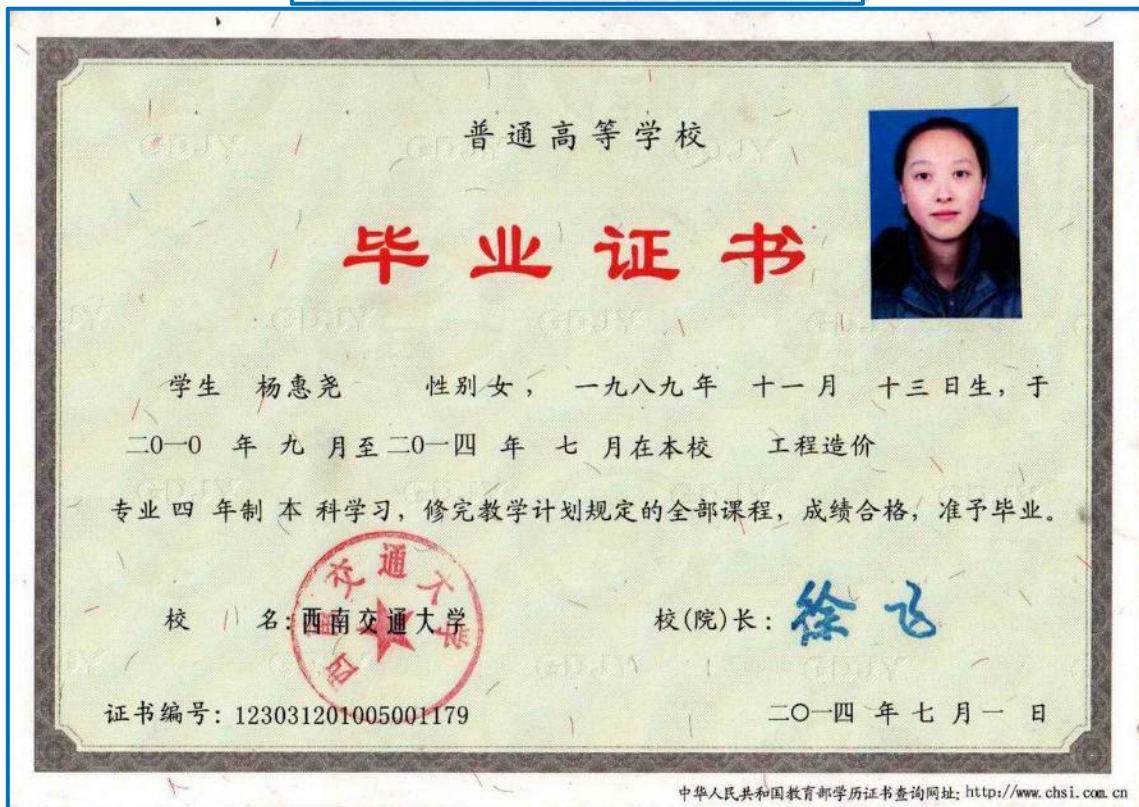 普通高等学校
毕业证书
学生 杨惠尧 性别女， 一九八九年 十一月 十三日生，于
二〇一〇 年 九 月至二〇一四 年 七 月在本校 工程造价
专业 四 年制 本 科学习，修完教学计划规定的全部课程，成绩合格，准予毕业。
西南交通大学
校 名：西南交通大学 校(院)长： 徐飞
证书编号：123031201005001179 二〇一四 年 七 月 一 日
中华人民共和国教育部学历证书查询网址：http://www.chsi.com.cn
GDJY